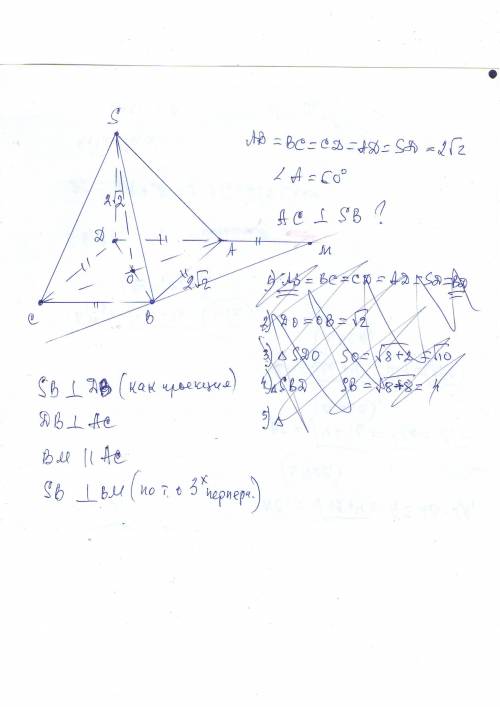 S
2√2
D
A
M
O
C
B
2√2
AB = BC = CD = AD = SD = 2√2
∠A = 60°
AC ⊥ SB ?
1) AB = BC = CD = AD = SD = BD
2) DO = OB = √2
3) △ SDO SO = √8+2 = √10
4) △ SBD SB = √8+8 = 4
5) △
SB ⊥ DB (как проекция)
DB ⊥ AC
BM || AC
SB ⊥ BM (по т. о 3ˣ перпен.)